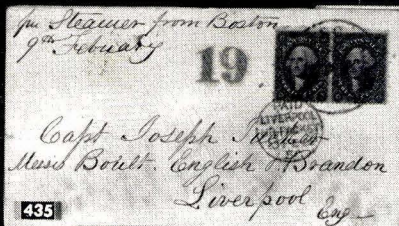 per Steamer from Boston
9th February
19
PAID
LIVERPOOL
Capt Joseph
Messrs Boult. English & Brandon
Liverpool
Eng
435